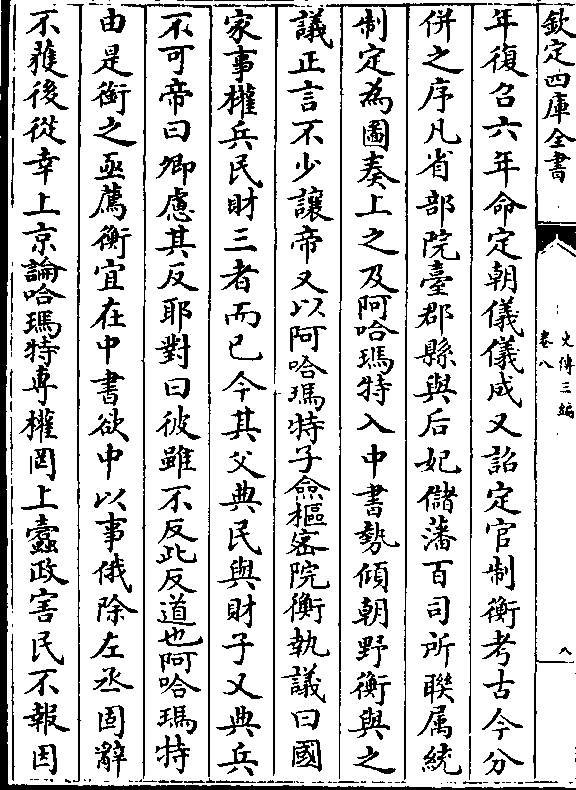 欽定四庫全書
史傳三編
卷八
八
年復召六年命定朝儀儀成又詔定官制衡考古今分
併之序凡省部院臺郡縣與后妃儲藩百司所聯属統
制定為圖奏上之及阿哈瑪特入中書勢傾朝野衡與之
議正言不少讓帝又以阿哈瑪特子僉樞密院衡執議曰國
家事權兵民財三者而已今其父典民與財子又典兵
不可帝曰卿慮其反耶對曰彼雖不反此反道也阿哈瑪特
由是銜之亟薦衡宜在中書欲中以事俄除左丞固辭
不獲後從幸上京論哈瑪特專權罔上蠹政害民不報因